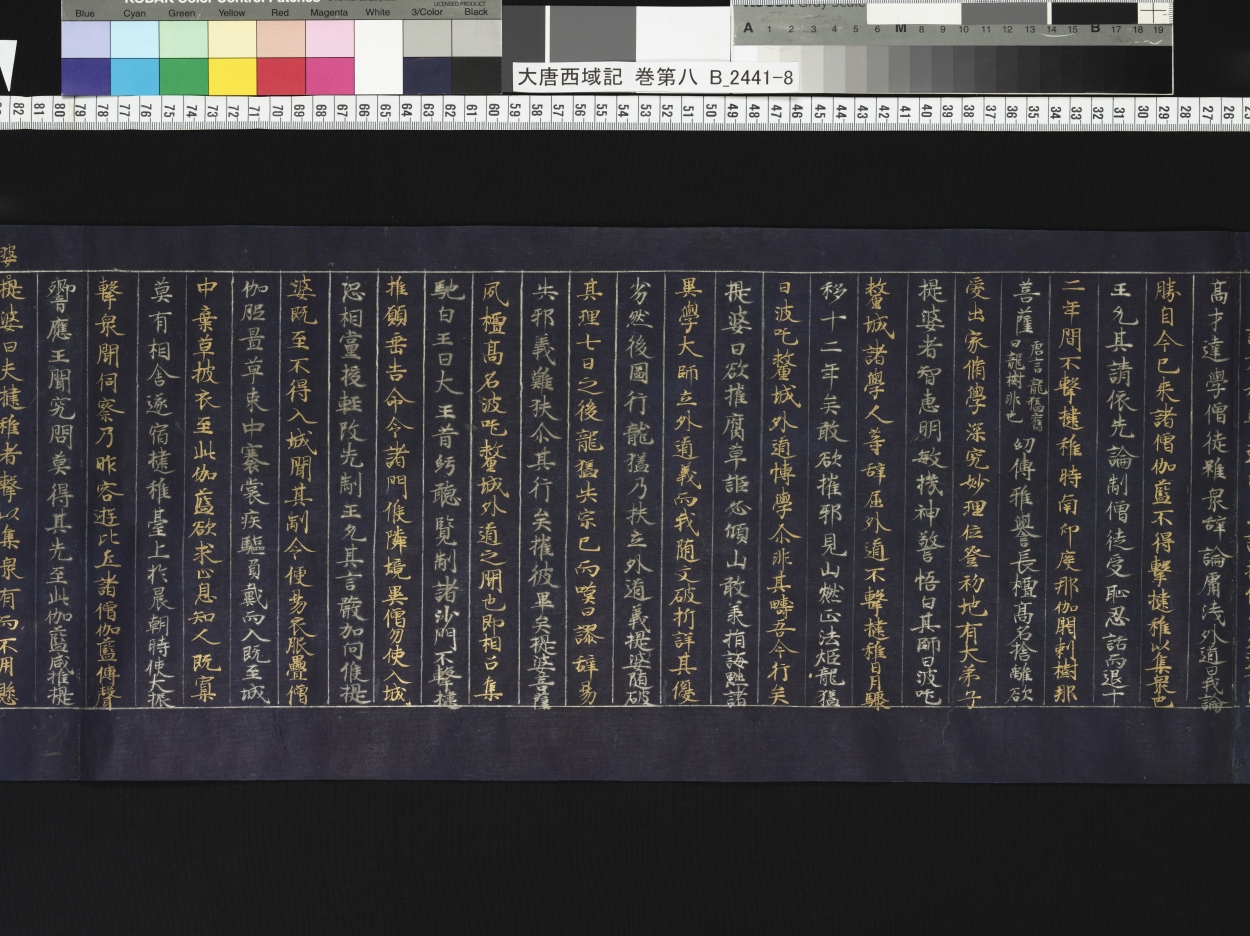 KODAK Color Control Patches
LICENSED PRODUCT
Blue Cyan Green Yellow Red Magenta White 3/Color Black
A 1 2 3 4 5 6 M 8 9 10 11 12 13 14 15 B 17 18 19
大唐西域記 巻第八 B_2441-8
82 81 80 79 78 77 76 75 74 73 72 71 70 69 68 67 66 65 64 63 62 61 60 59 58 57 56 55 54 53 52 51 50 49 48 47 46 45 44 43 42 41 40 39 38 37 36 35 34 33 32 31 30 29 28 27 26
高才達學僧徒雖衆辞論庸浅外道曰我論
勝自今已來諸僧伽藍不得擊揵稚以集衆也
王允其請依先論制僧徒受恥忍詬而退十
二年間不擊揵稚時南印度那伽閼剌樹那
菩薩唐言龍猛舊曰龍樹非也幼傳雅譽長擅髙名捨離欲
愛出家脩學深究妙理位登初地有大弟子
提婆者智恵明敏機神警悟白其師曰波吒
釐城諸學人等辞屈外道不擊揵稚日月驟
移十二年矣敢欲摧邪見山燃正法炬龍猛
曰波吒釐城外道博學尒非其疇吾今行矣
提婆曰欲摧腐草詎必傾山敢承指誨黜諸
異學大師立外道義而我随文破析詳其優
劣然後圖行龍猛乃扶立外道義提婆随破
其理七日之後龍猛失宗已而嘆曰謬辞易
失邪義難扶尒其行矣摧彼畢矣提婆菩薩
夙擅髙名波吒釐城外道之聞也即相召集
馳白王曰大王昔紆聽覧制諸沙門不擊揵
推願垂告命令諸門候隣境異僧勿使入城
恐相黨援輕改先制王允其言嚴加伺候提
婆既至不得入城聞其制令便易衣服疊僧
伽胝置草束中褰裳疾驅負戴而入既至城
中棄草披衣至此伽藍欲求止息知人既寡
莫有相舎遂宿揵稚臺上於晨朝時使大振
擊衆聞伺察乃昨客遊比丘諸僧伽藍傳聲
響應王聞究問莫得其先至此伽藍咸推提
婆提婆曰夫揵稚者擊以集衆有而不用懸